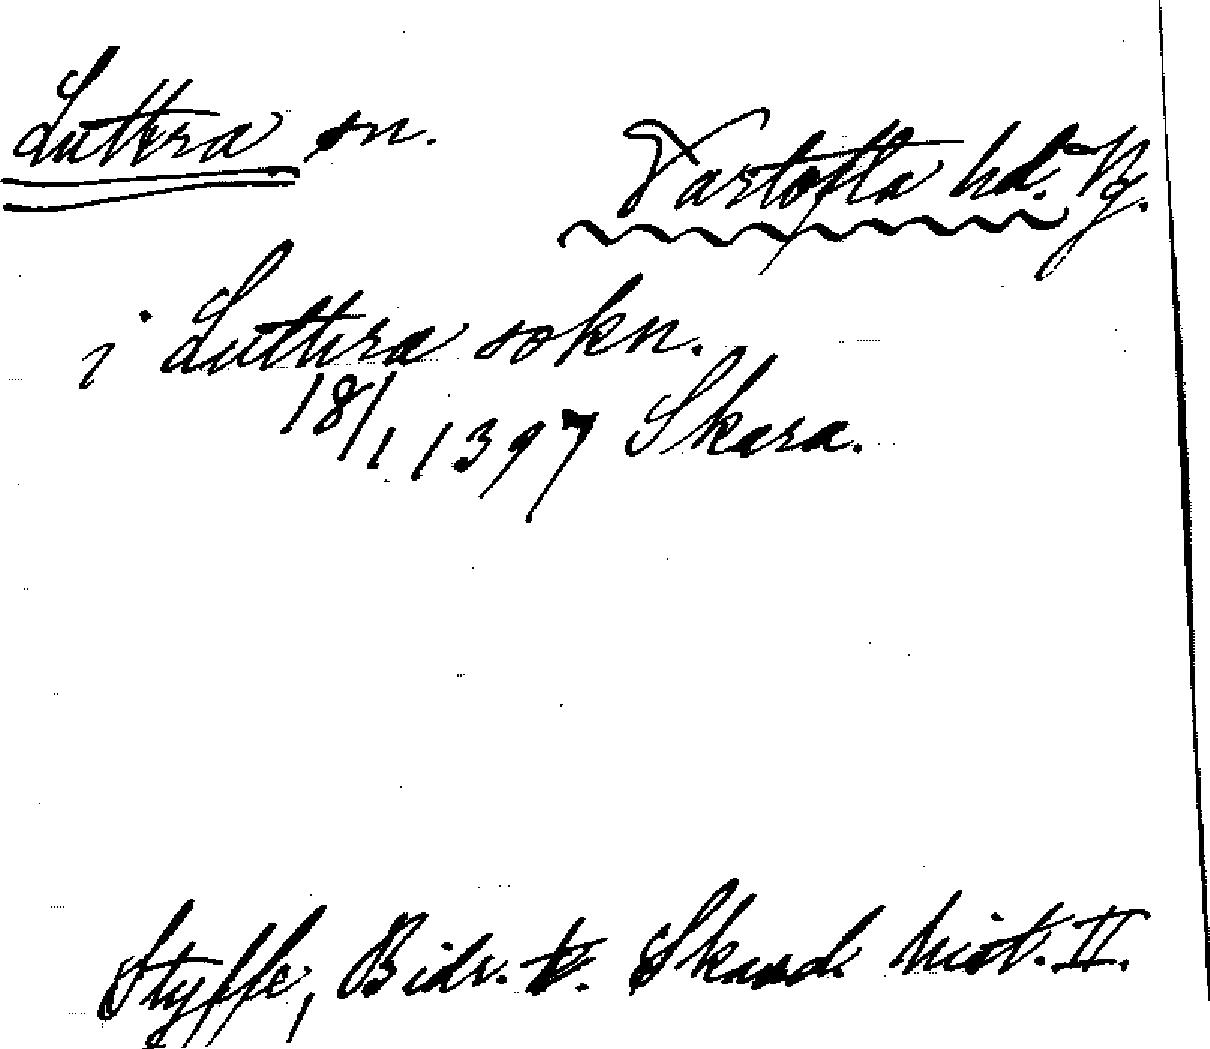 Luttra sn. Vartofta hd. Vg.
i Luttra sokn.
18/1 1397 Skara.
Styffe, Bidr. t. Skand. hist. II.